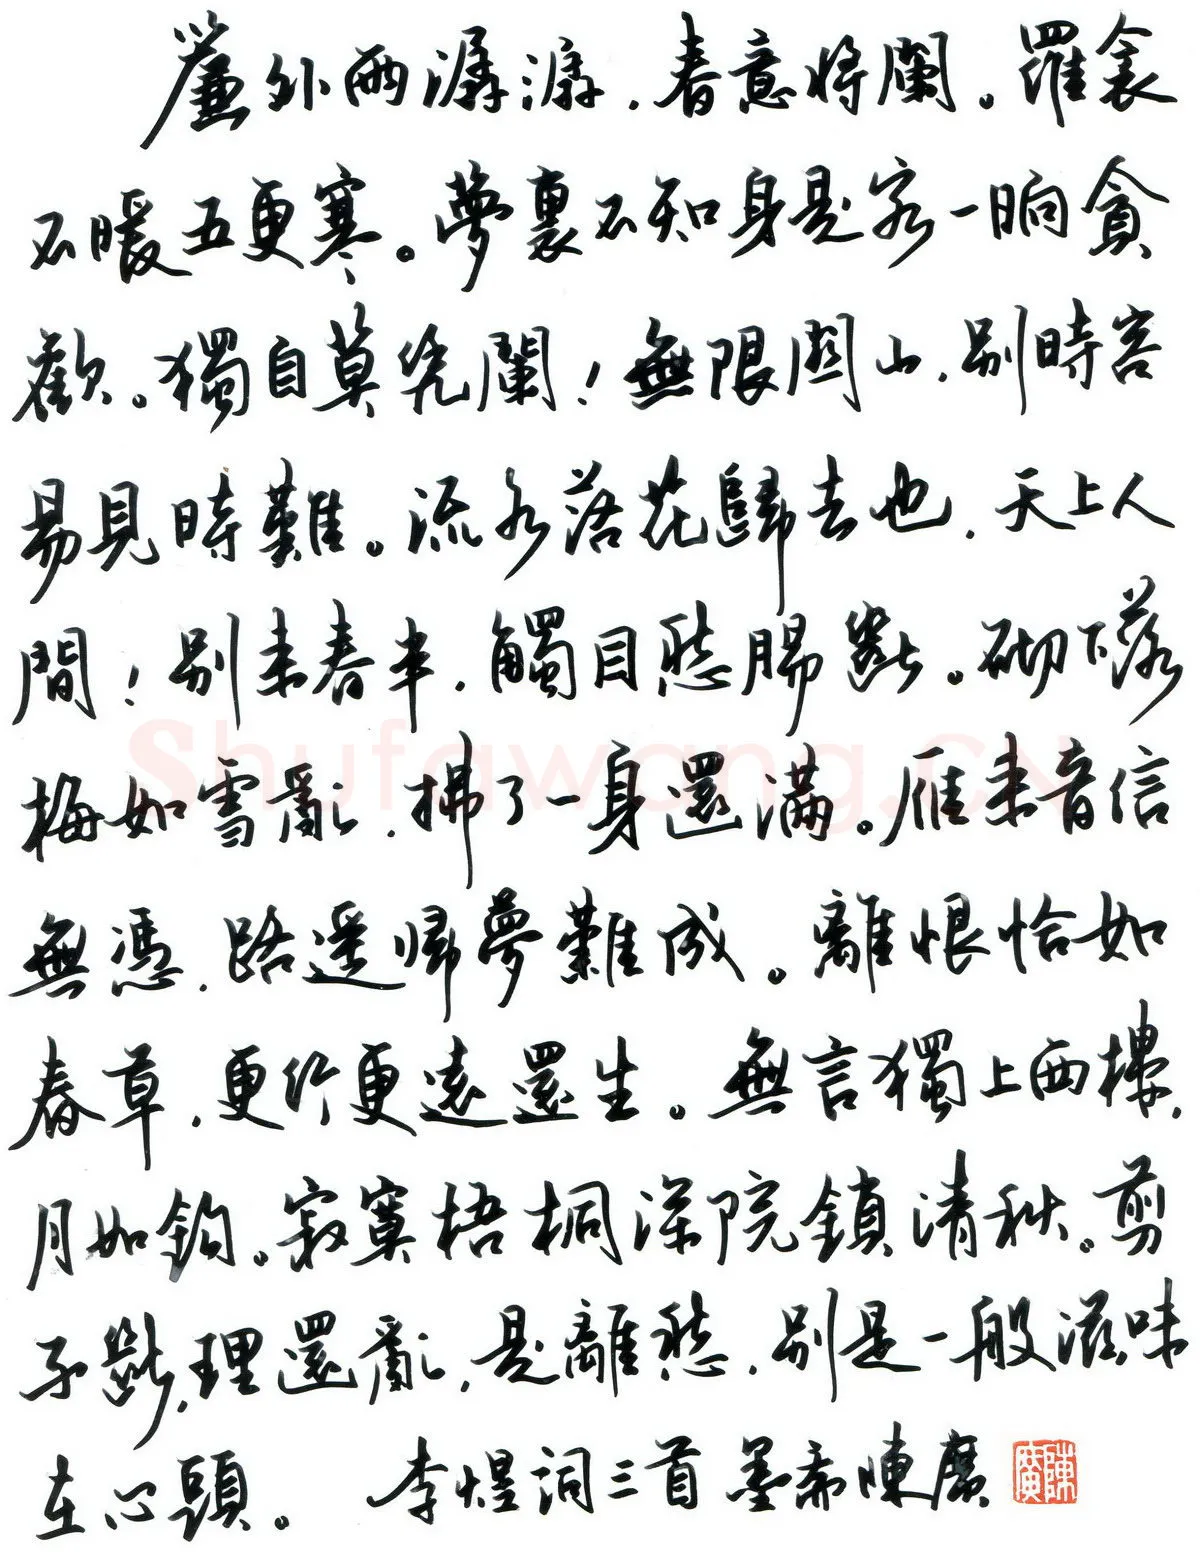 簾外雨潺潺，春意將闌。羅衾
不暖五更寒。夢裏不知身是客一晌貪
歡。獨自莫凭闌！無限關山，别時容
易見時難。流水落花歸去也，天上人
間！别來春半，觸目愁腸斷。砌下落
梅如雪亂，拂了一身還滿。雁來音信
無憑，路遥歸夢難成。離恨恰如
春草，更行更遠還生。無言獨上西樓，
月如鈎。寂寞梧桐深院鎖清秋。剪
不斷，理還亂，是離愁，别是一般滋味
在心頭。 李煜詞三首 墨齋陳廣
陳廣
Shufawang.CN